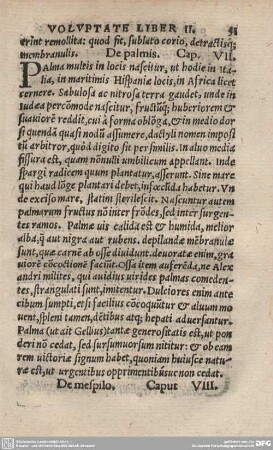 VOLVPTATE LIBER II. 91
erint remollita: quod fit, sublato corio, detractisq;
membranulis. De palmis. Cap. VII.
PAlma multis in locis nascitur, ut hodie in Ita-
lia, in maritimis Hispaniæ locis, in Africa licet
cernere. Sabulosa ac nitrosa terra gaudet, unde in
Iudæa percōmode nascitur, fructūq; huberiorem &
suauiorē reddit, cui à forma oblōga, & in medio dor
si quendā quasi nodū assumere, dactyli nomen imposi
tū arbitror, quòd digito sit persimilis. In aluo mediā
fissura est, quam nonulli umbilicum appellant. Inde
spargi radicem quum plantatur, asserunt. Sine mare
qui haud lōge plantari debet, infœcūda habetur. Vn
de exciso mare, statim sterilescit. Nascuntur autem
palmarum fructus nō inter frōdes, sed inter surgen-
tes ramos. Palmæ uis calida est & humida, melior
alba, q̄ aut nigra aut rubens. depilandæ mēbranulæ
sunt, quæ carnē ab osse diuidunt. deuoratæ enim, gra
uiorē cōcoctionē faciūt. Ossa item auferēda, ne Alex
andri milites, qui auidius uirides palmas comeden-
tes, strangulati sunt, imitentur. Dulciores enim ante
cibum sumpti, etsi facilius cōcoquūtur & aluum mo
uent, spleni tamen, dētibus atq; hepati aduersantur.
Palma (ut ait Gellius) tantæ generositatis est, ut pon
deri nō cedat, sed sursumuorsum nititur: & ob eam
rem uictoriæ signum habet, quoniam huiusce natu-
ræ est, ut urgentibus opprimentibúsue non cedat.
De mespilo. Caput VIII.